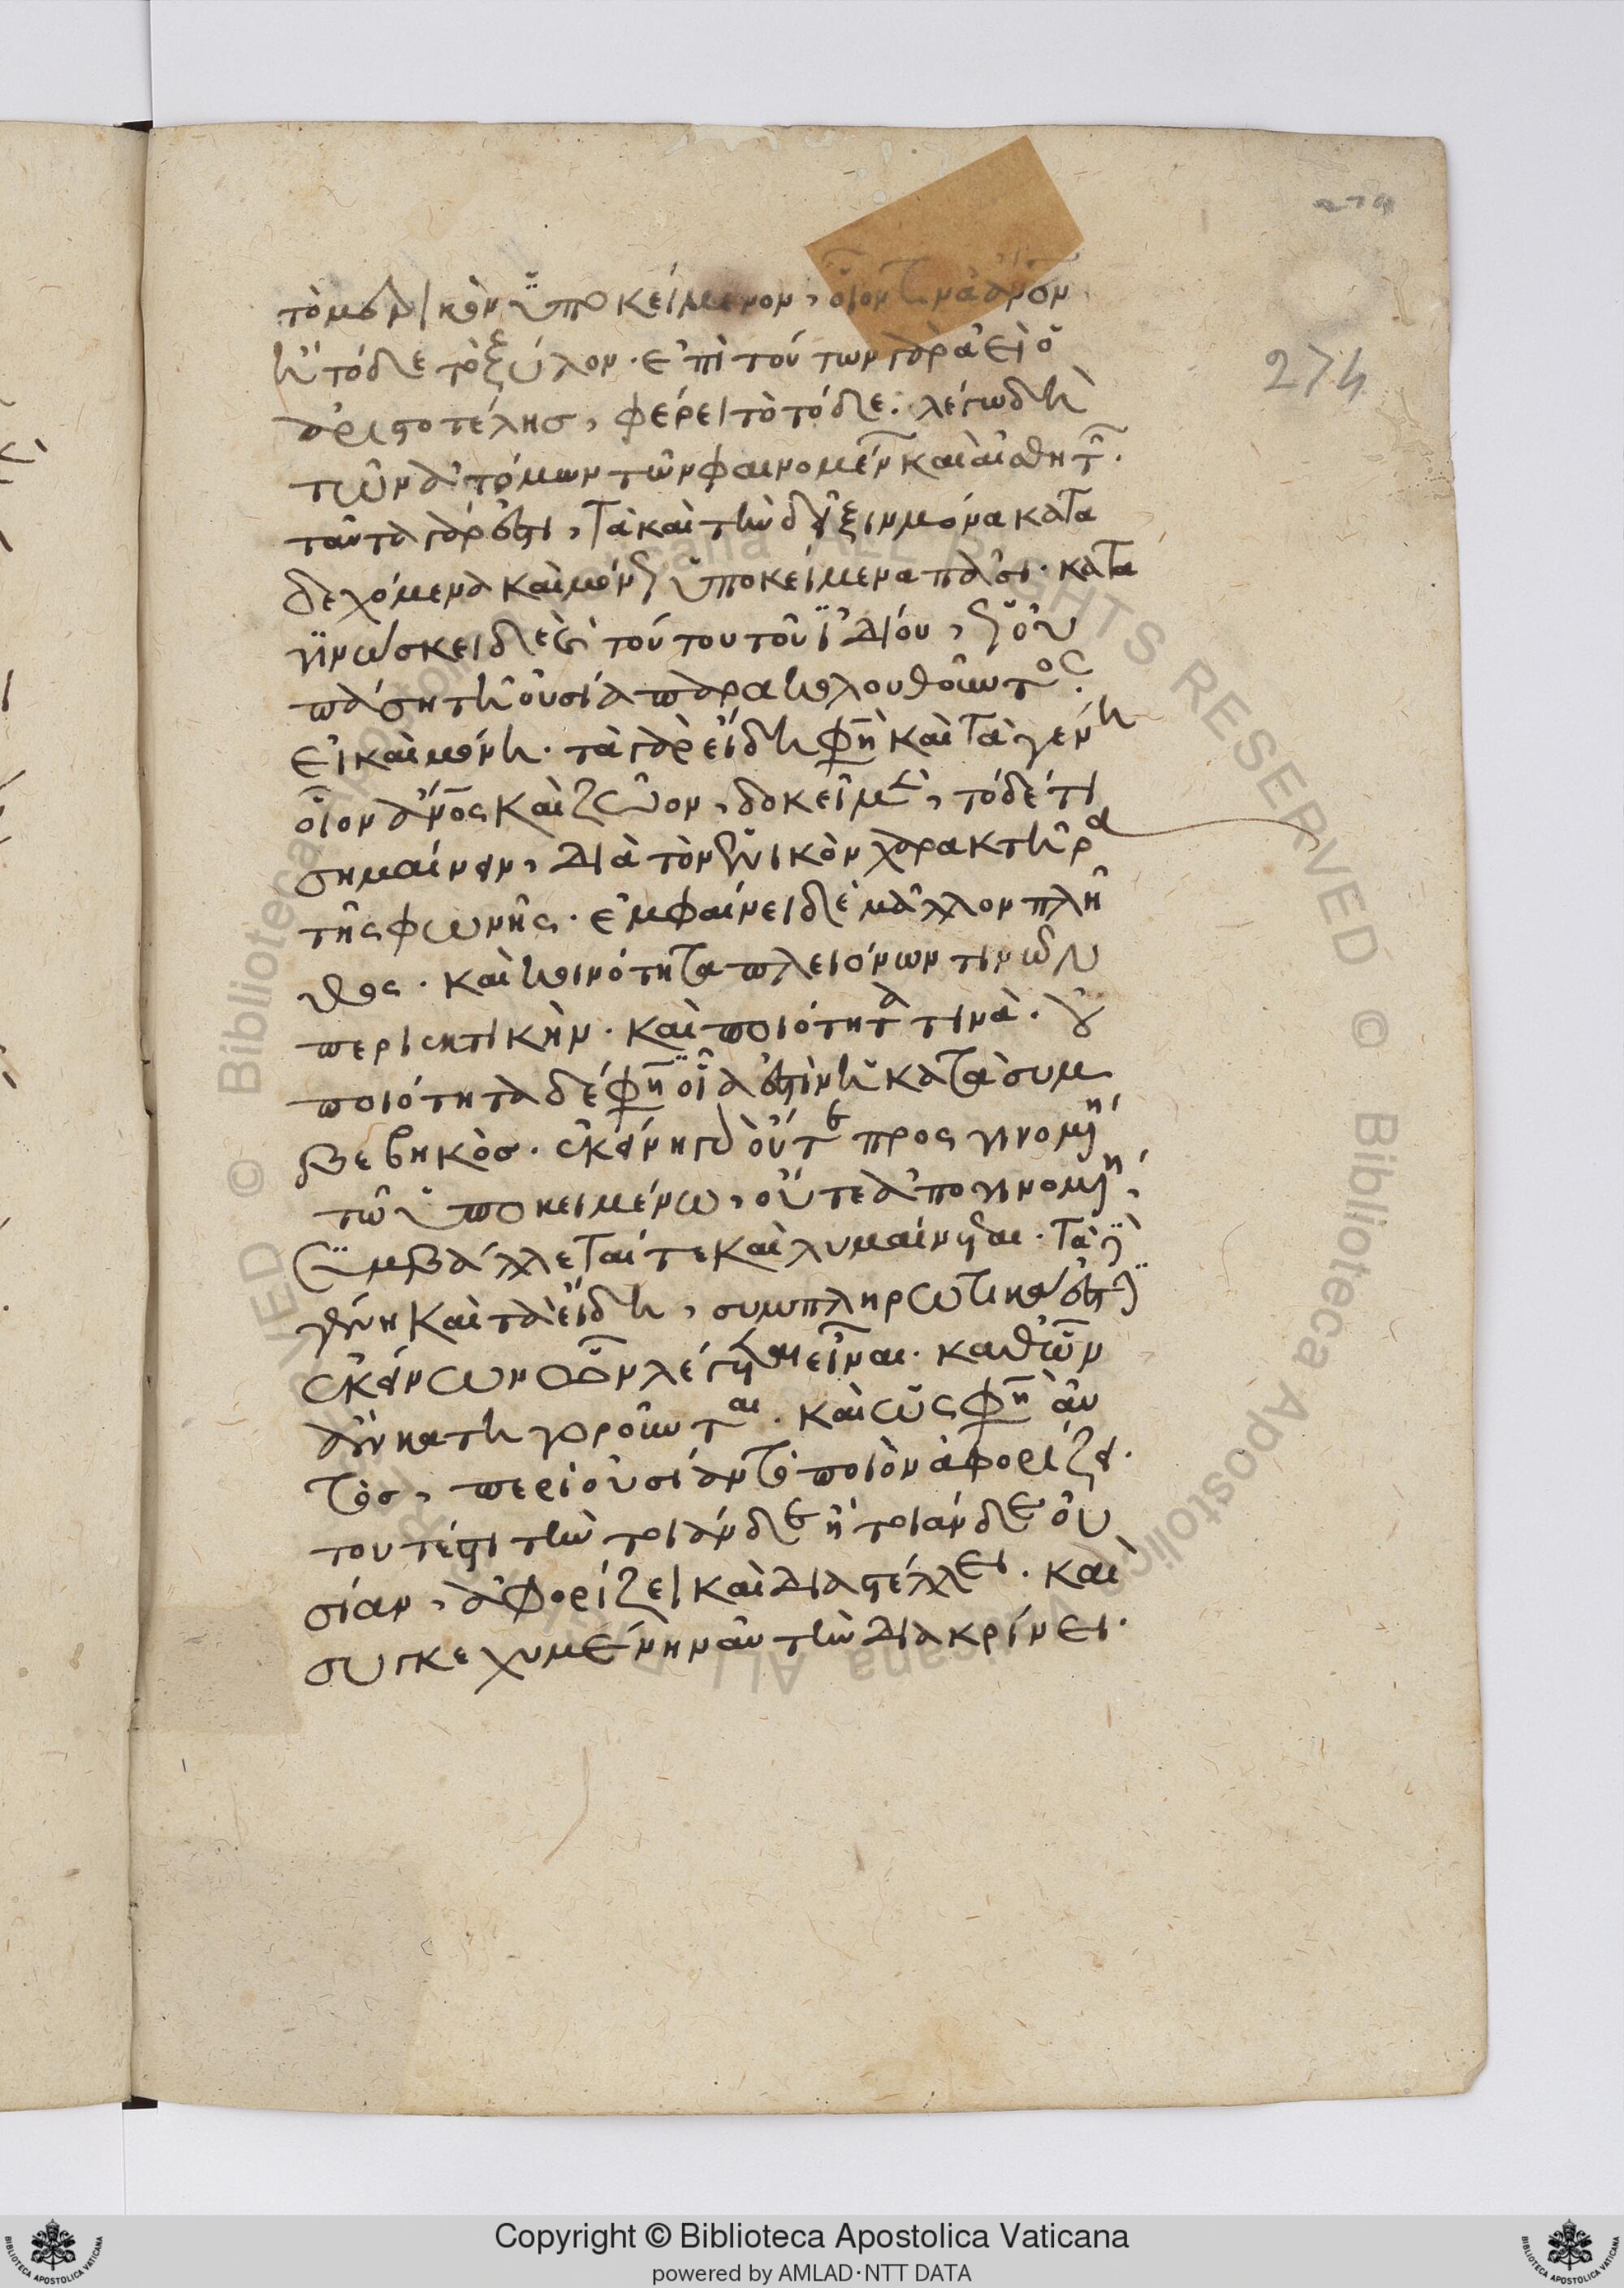 τὸ μερικὸν ὑποκείμενον, οἷον τινὰ ἄνον
ἢ τόδε τὸ ξύλον. ἐπὶ τούτων γὰρ ἀεὶ ὁ
ἀριστοτέλησ, φέρει τὸ τόδε. λέγω δὴ
τῶν ἀτόμων τῶν φαινομέν καὶ αἰσθητ.
ταῦτα γὰρ ἐστι, τὰ καὶ τὴν δεῖξιν μόνα κατα
δεχόμενα καὶ μόνως ὑποκείμενα πᾶσι. κατα
γινώσκει δὲ ἐπὶ τούτου τοῦ ἰδίου, ὡς οὐ
πάσῃ τῇ οὐσίᾳ παρακολουθοῦντος.
εἰ καὶ μόνῃ. τὰ γὰρ εἴδη φη καὶ τὰ γένη
οἷον ἄνος καὶ ζῶον, δοκεῖ μὲν, τόδε τι
σημαίνειν, διὰ τὸν ἑνικὸν χαρακτῆρα
τῆς φωνῆς. ἐμφαίνει δὲ μᾶλλον πλῆ
θος. καὶ κοινότητα πλειόνων τινῶν
περιεκτικὴν. καὶ ποιότητα τινὰ.
ποιότητα δέ φη οἵα ἐστὶν ἡ κατὰ συμ
βεβηκὸσ. ἐκείνη γὰρ οὔτε προς γινομένη
τῷ ὑποκειμένῳ, οὔτε ἀπογινομένη,
συμβάλλεταί τε καὶ λυμαίνεται. τὰ δὲ
γένη καὶ τὰ εἴδη, συμπληρωτικά ἐστιν
ἐκείνων ὧν λέγεται εἶναι. καθ' ὧν
ἂν κατηγοροῦνται. καὶ ὡς φη αὐ
τὸσ, περὶ οὐσίαν τὸ ποιὸν ἀφορίζει.
τουτέστι τὴν τοιάνδε ἢ τοιάνδε οὐ
σίαν, ἀφορίζει καὶ διαστέλλει. καὶ
συγκεχυμένην αὐτὴν διακρίνει.
274
Copyright © Biblioteca Apostolica Vaticana
powered by AMLAD·NTT DATA